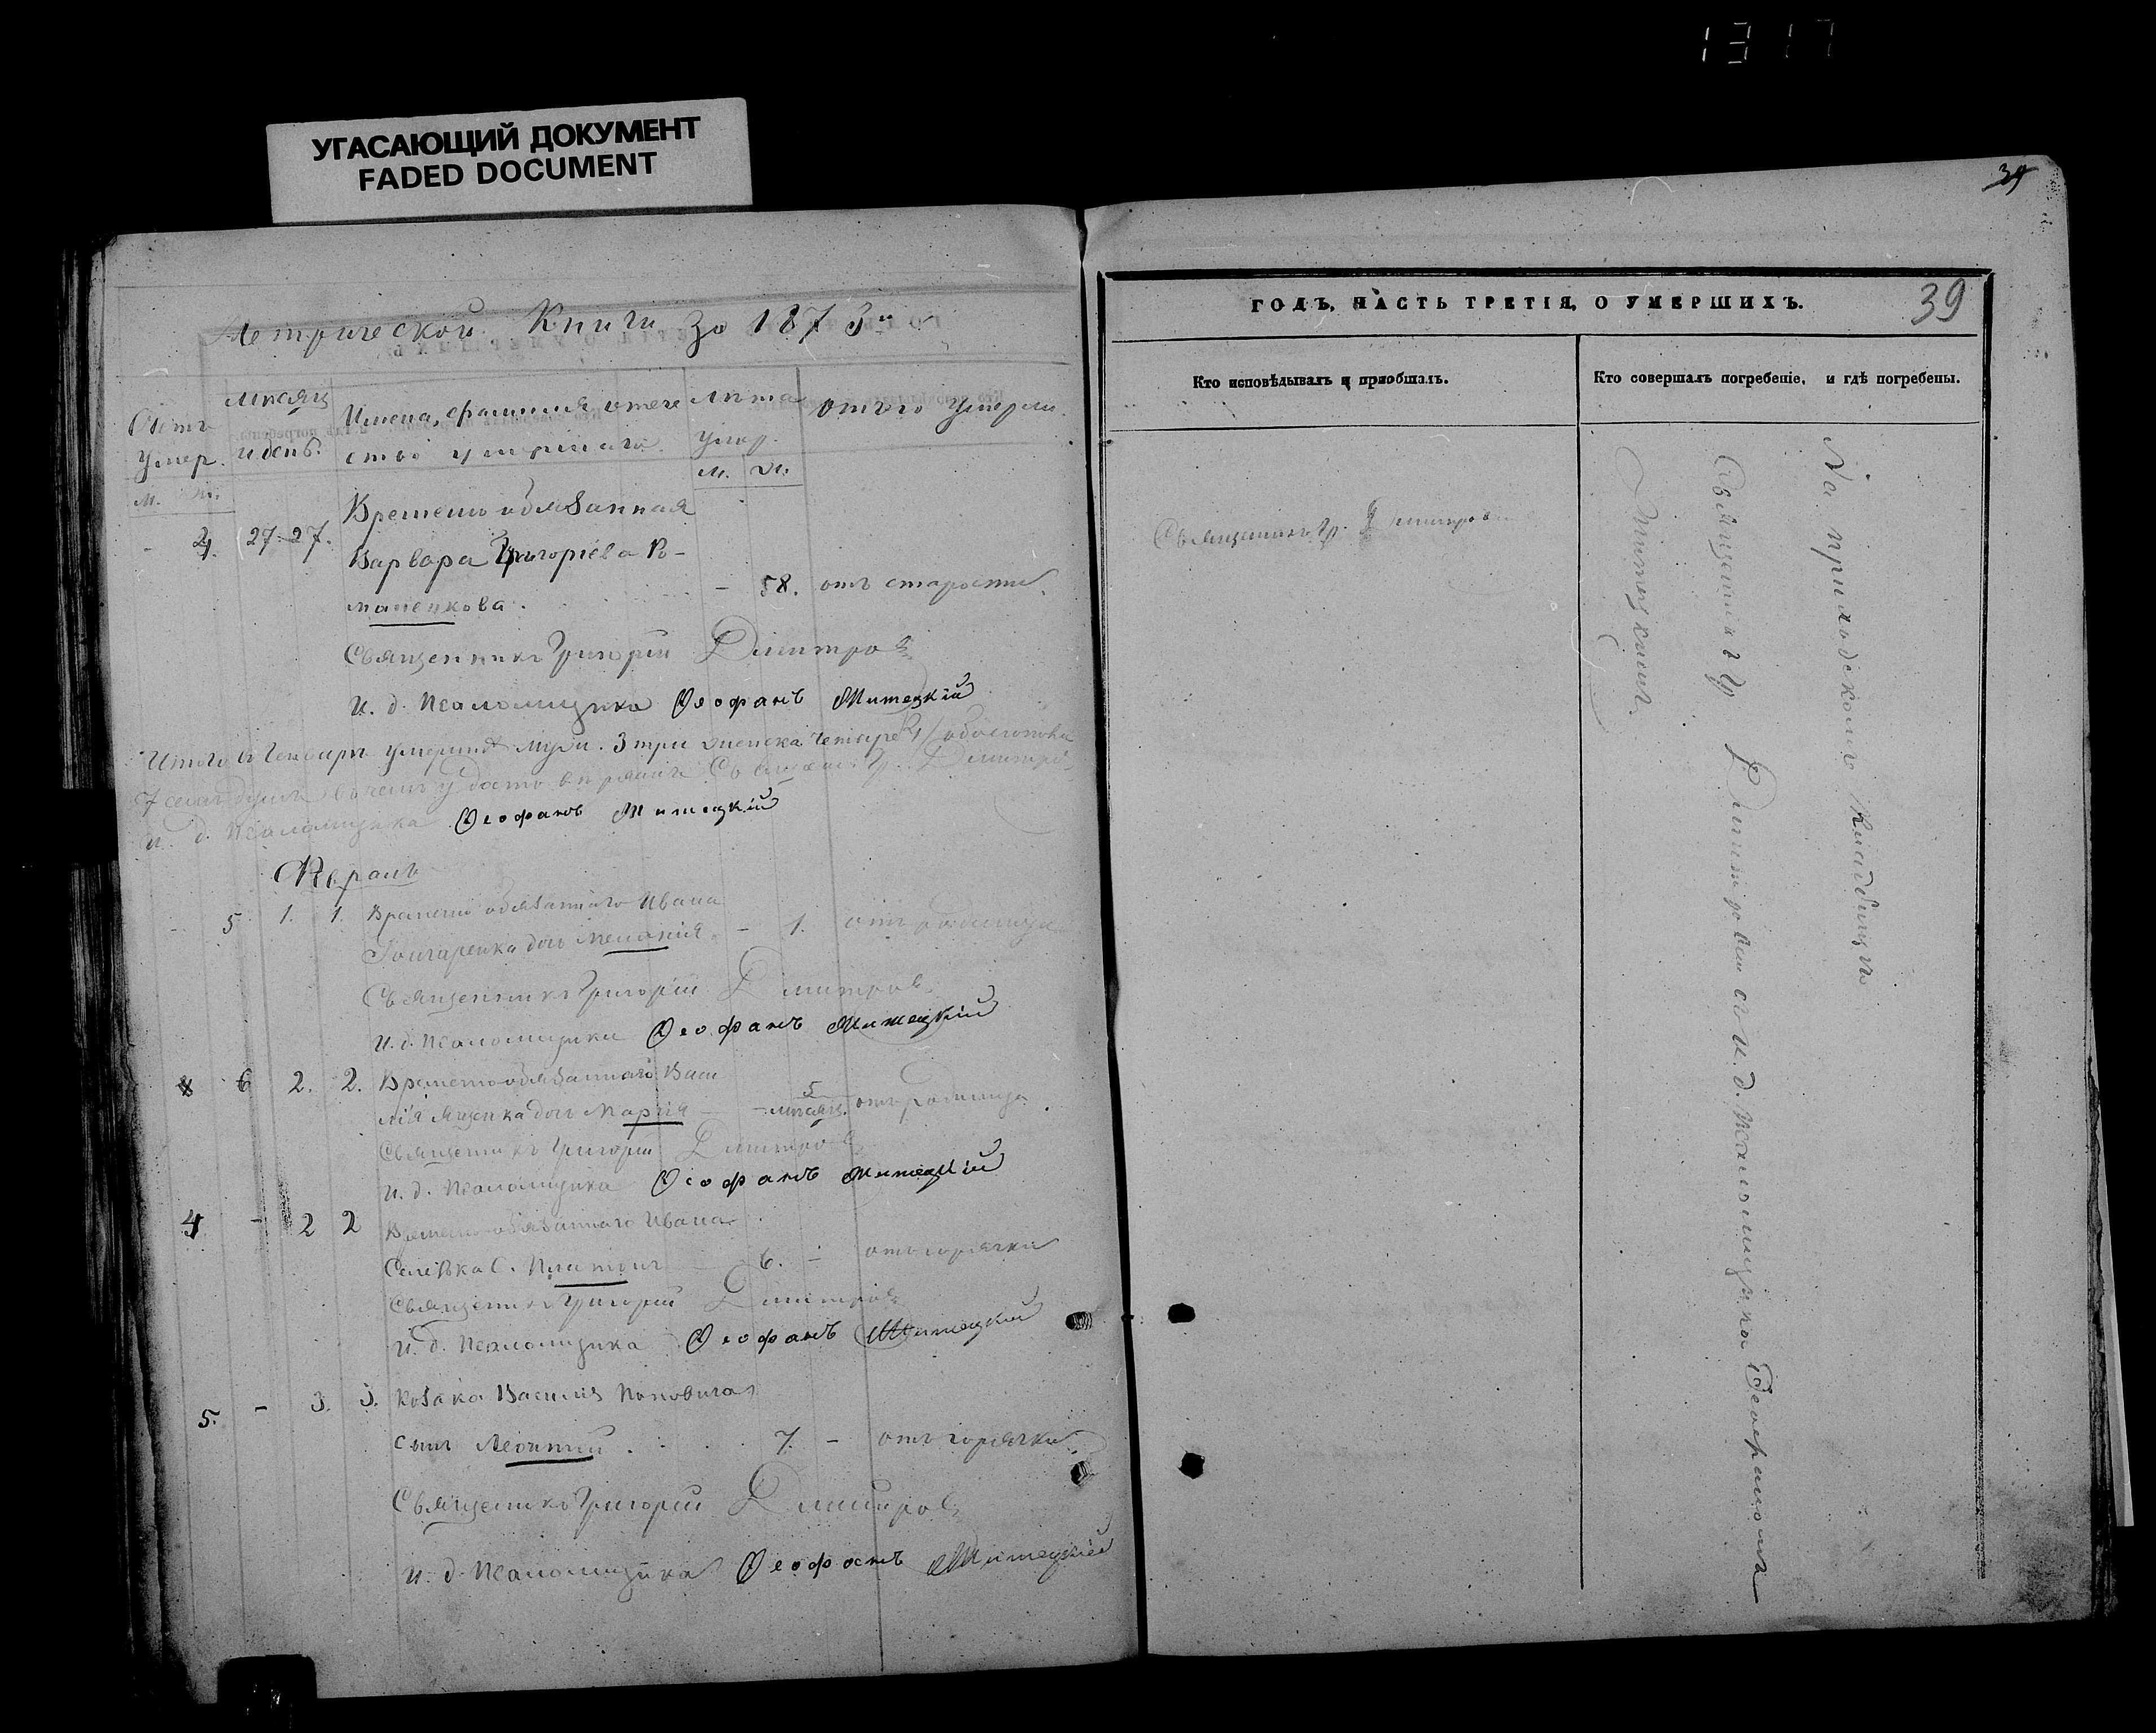 1317
УГАСАЮЩИЙ ДОКУМЕНТ
FADED DOCUMENT
Метрической Книги за 1873й
Счетъ умер.
мѣсяцъ и день.
Имена, фамилія, отече
ство умершаго
лѣта умер.
отъ чего умерли.
м. ж.
м. ж.
Временно обязанная
- 4. 27. 27.
Варвара Григоріева Ро-
маненкова. - 58. отъ старости
Священникъ Григорій Димитровъ
и. д. Псаломщика Ѳеофанъ Житецкій
Итого въ Генварѣ умершихъ муж. 3 три женска четыре 4 / обоего пола
7 семь душъ
Священ. Гр. Димитро
и. д. Псаломщика Ѳеофанъ Житецкій
Февраль
- 5 1. 1. Временно обязаннаго Ивана
Гончаренка дочь Меланія - 1. отъ родимца
Священникъ Григорій Димитровъ
И. д. Псаломщика Ѳеофанъ Житецкій
6 2. 2. Временно обязаннаго Васи
лія Яценка дочь Марія - 5 мѣсяц. отъ родимца.
Священникъ Григорій Димитровъ
и. д. Псаломщика Ѳеофанъ Житецкій
4 - 2 2 Временно обязаннаго Ивана
с. Платонъ 6. - отъ горячки
Священникъ Григорій Димитровъ
и. д. Псаломщика Ѳеофанъ Житецкій
5. - 3. 3. Козака Василія Поповича
сынъ Леонтий . . . . 7. - отъ горячки.
Священникъ Григорій Димитровъ
и. д. Псаломщика Ѳеофанъ Житецкій
39
39
ГОДЪ, ЧАСТЬ ТРЕТІЯ, О УМЕРШИХЪ.
Кто исповѣдывалъ и пріобщалъ.
Кто совершалъ погребеніе, и гдѣ погребены.
Священникъ Гр. Димитровъ
На приходскомъ кладбищѣ
Священникъ Гр. Димитровъ съ И. д. Псаломщика Ѳеофаномъ
Житецкимъ.